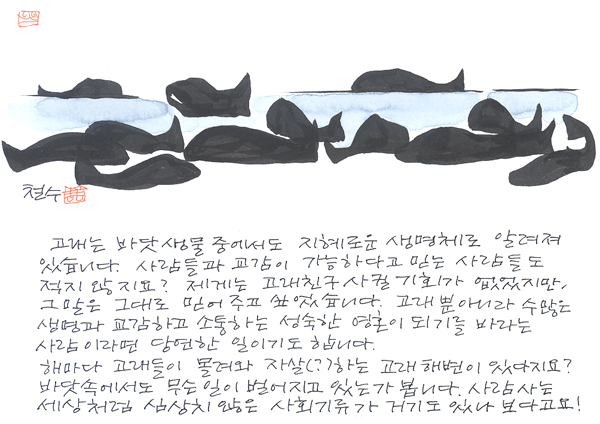 철수
고래는 바닷생물 중에서도 지혜로운 생명체로 알려져
있습니다. 사람들과 교감이 가능하다고 믿는 사람들도
적지 않지요? 제게는 고래친구 사귈 기회가 없었지만,
그 말은 그대로 믿어주고 싶었습니다. 고래뿐아니라 수많은
생명과 교감하고 소통하는 성숙한 영혼이 되기를 바라는
사람이라면 당연한 일이기도 합니다.
해마다 고래들이 몰려와 자살(?)하는 고래해변이 있다지요?
바닷속에서도 무슨일이 벌어지고 있는가 봅니다. 사람사는
세상처럼 심상치 않은 사회기류가 거기도 있나 보다고요!